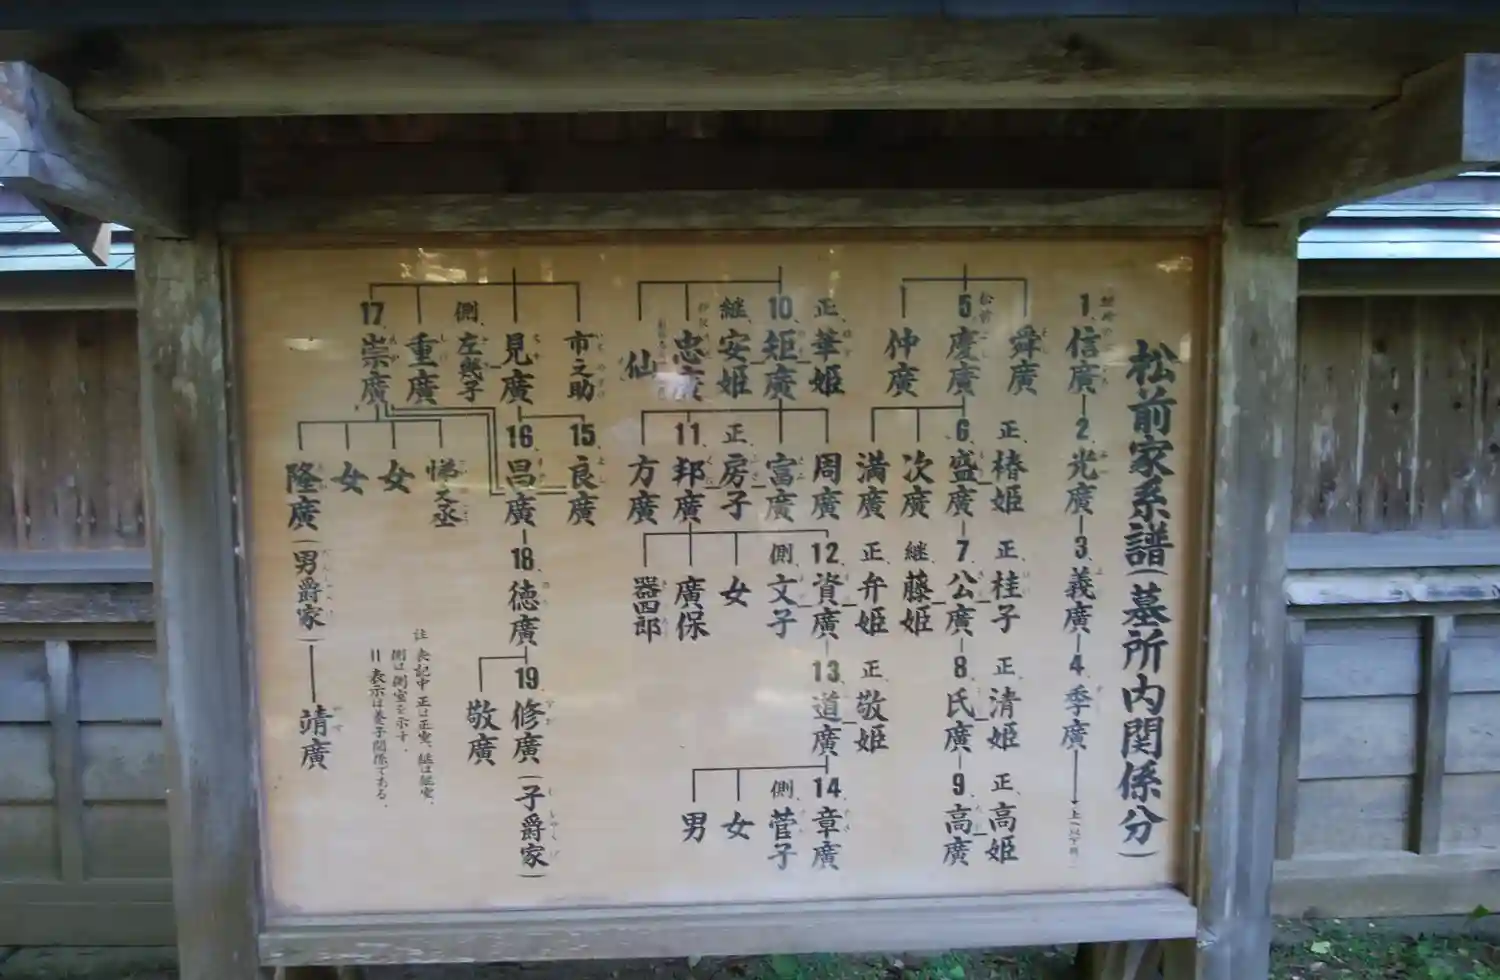 松前家系譜(墓所内関係分)
1. 信廣
2. 光廣
3. 義廣
4. 季廣
舜廣
5. 慶廣
松前
仲廣
正. 椿姫
6. 盛廣
次廣
満廣
正. 桂子
7. 公廣
継. 藤姫
正. 清姫
8. 氏廣
正. 高姫
9. 高廣
正. 華姫
10. 矩廣
継. 安姫
忠廣
仙
周廣
富廣
正. 房子
11. 邦廣
方廣
正. 弁姫
12. 資廣
側. 文子
女
廣保
器四郎
正. 敬姫
13. 道廣
14. 章廣
側. 菅子
女
男
市之助
見廣
側. 左幾子
重廣
17. 崇廣
15. 良廣
16. 昌廣
女
女
隆廣(男爵家)
靖廣
18. 徳廣
19. 修廣(子爵家)
敬廣
注 表記中 正は正室、継は継室、
側は側室を示す.
〢 表示は養子関係である.